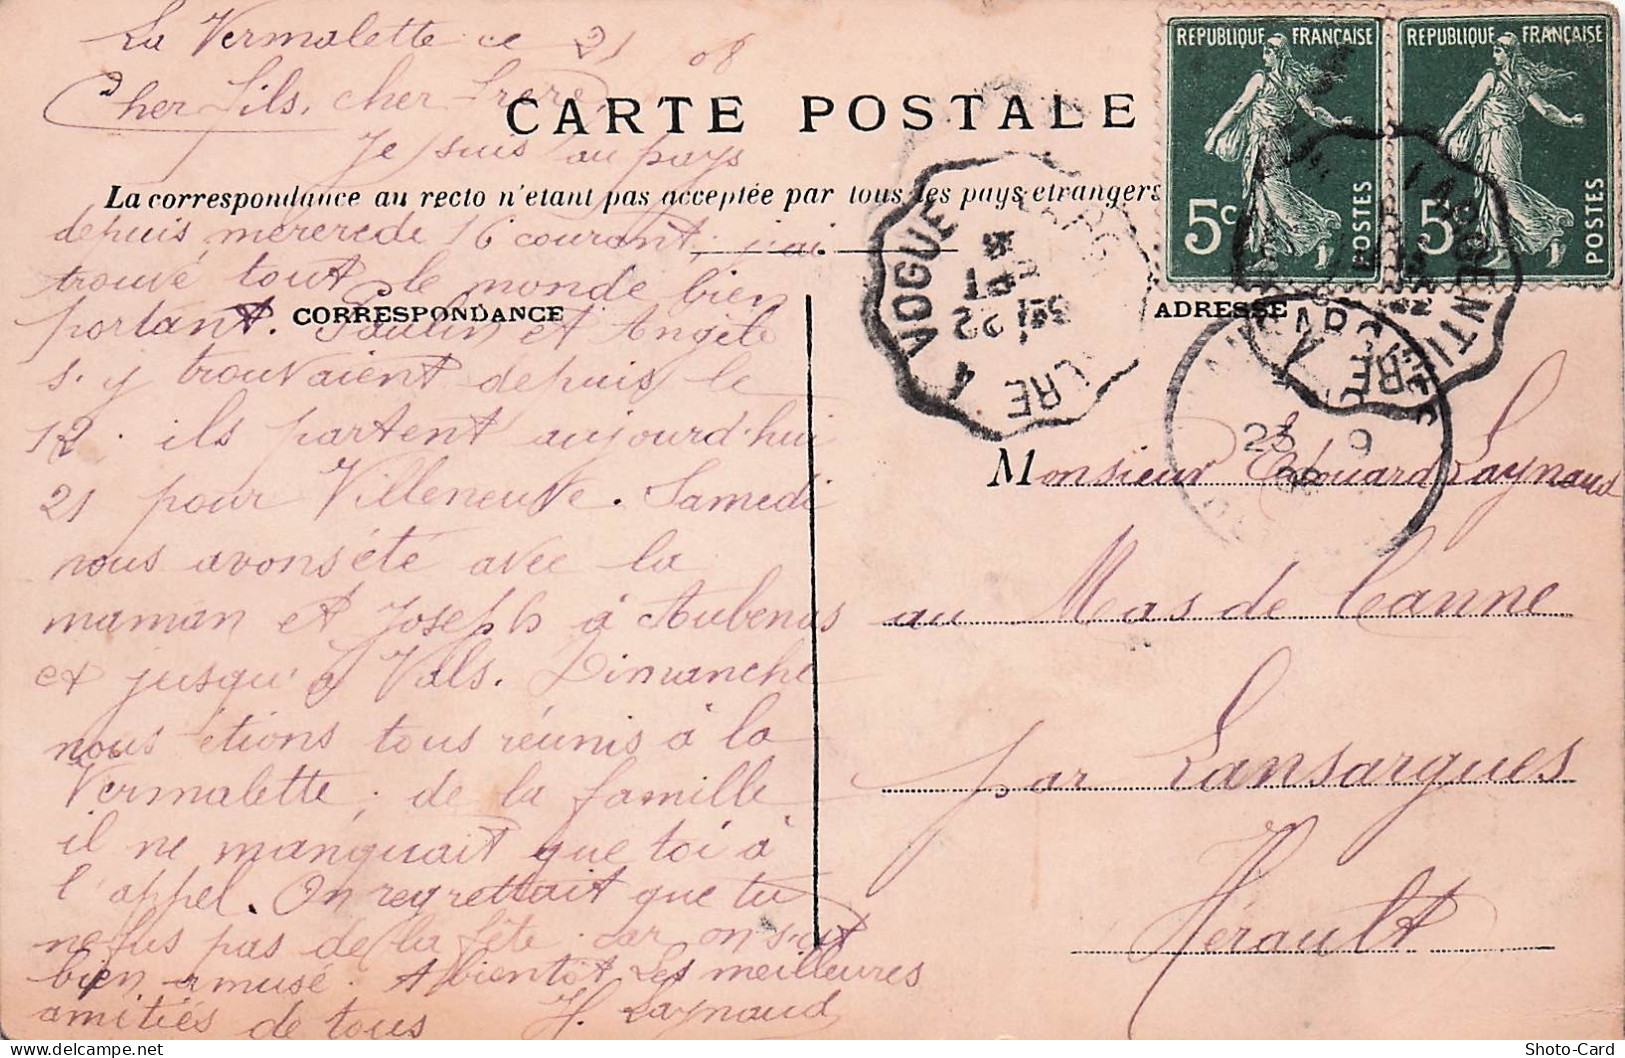 La Vermalette ce 21 08
Cher fils, cher frère,
CARTE POSTALE
Je suis au pays
La correspondance au recto n'étant pas acceptée par tous les pays étrangers
depuis mererede 16 courant, j'ai
trouvé tout le monde bien
portant. Paulin et Angèle
CORRESPONDANCE
s'y trouvaient depuis le
12. ils partent aujourd'hui
21 pour Villeneuve. Samedi
nous avons été avec la
maman et Joseph à Aubenas
et jusqu'à Vals. Dimanche
nous étions tous réunis à la
Vermalette, de la famille
il ne manquait que toi à
l'appel. On regrettait que tu
ne fus pas de la fête car on s'est
bien amusé. A bientôt Les meilleures
amitiés de tous H. Raynaud
REPUBLIQUE FRANÇAISE
5c
POSTES
REPUBLIQUE FRANÇAISE
5
POSTES
VOGUE
22
23 9
ADRESSE
Monsieur Edouard Raynaud
au Mas de Canne
par Lansargues
Hérault
Shoto-Card